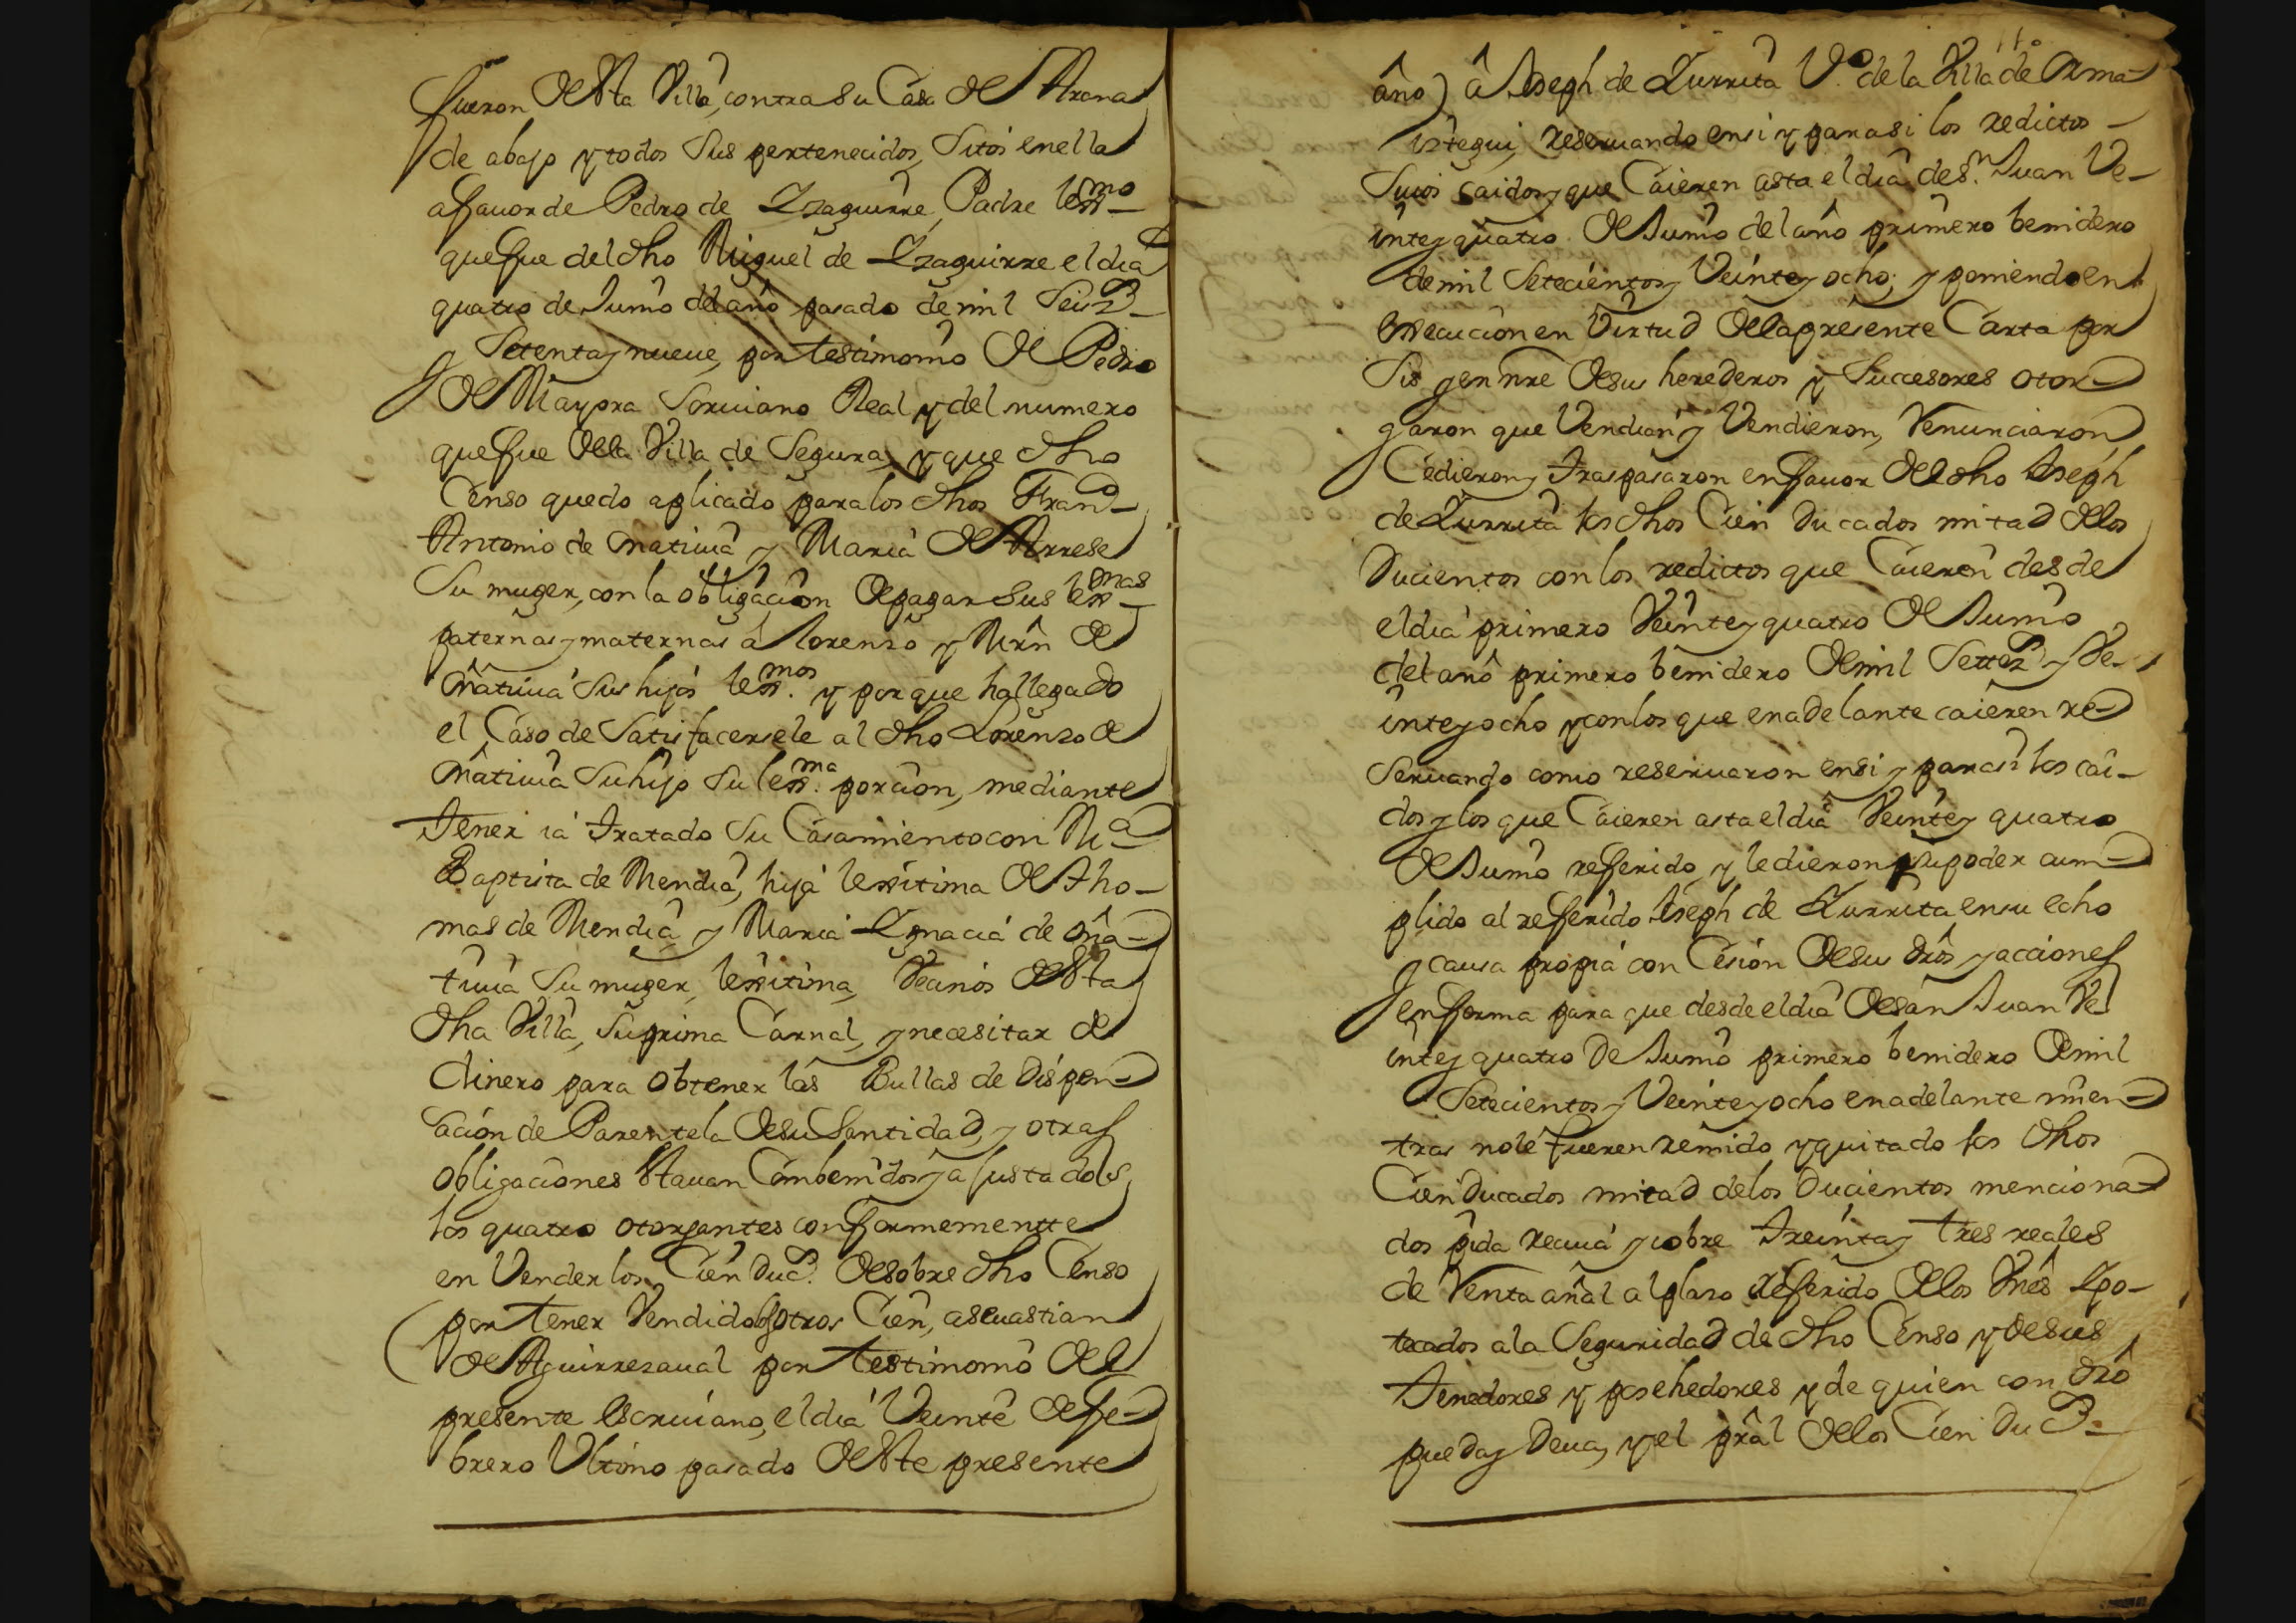 fueron de esta Villa, contra su Casa de Arana
de abajo y todos sus pertenecidos, sitos en ella
a favor de Pedro de Yzaguirre, Padre lexmo
que fue del dho Miguel de Yzaguirre el dia
quatro de Junio del año pasado de mil Seis
y Setenta y nueve, por testimonio de Pedro
de Mayora Scriuano Real y del numero
que fue de la Villa de Segura, y que dho
Censo quedo aplicado para los dhos Franco
Antonio de Oñatiuia y Maria de Arrese
su muger, con la obligacion de pagar sus lexmas
paternas y maternas a Lorenzo y Mrn de
Oñatiuia sus hijos lexmos. y porque ha llegado
el Caso de Satisfacersele al dho Lorenzo de
Oñatiuia su hijo su lexma. porcion, mediante
tener ia tratado su Casamiento con Ma
Baptista de Mendia, hija lexitima de Tho-
mas de Mendia y Maria Ygnacia de Oña
tiuia su muger, lexitima, Vecinos de esta
dha Villa, su prima Carnal, y necesitar de
dinero para obtener las Bullas de dispen
sacion de Parentela de su Santidad, y otras
obligaciones estauan Combenidos y ajustados
los quatro otorgantes conformementte
en Vender los Cien duc. de sobre dho Censo
(por tener Vendidos los otros Cien, a Seuastian
de Aguirrezaual por testimonio del
presente Escriuano, el dia Veinte de fe
brero Ultimo pasado de este presente
año) â Joseph de Zurrita Vo. de la Villa de Orma
iztegui, reseruando en si y para si los redictos
suios caidos y que Caieren asta el dia de Sn. Juan Ve-
inte y quatro de Junio del año primero benidero
de mil Setecientos y Veinte y ocho; y poniendo en
execucion en Virtud de la presente Carta por
sis y en nre de sus herederos y Sucesores otor
garon que Vendian y Vendieron, renunciaron
Cedieron y traspasaron en fauor del dho Joseph
de Zurrita los dhos Cien Ducados mitad de los
Ducientos con los redictos que Caieren desde
el dia primero Veinte y quatro de Junio
del año primero benidero de mil Settez y Ve-
inte y ocho y con los que en adelante caieren re
seruando como reseruaron en si y para si los cai-
dos y los que Caieren asta el dia Veinte y quatro
de Junio referido, y le dieron su poder cum
plido al referido Joseph de Zurrita en su echo
y causa propia con Cesion de sus dros y acciones
en forma para que desde el dia de San Juan Ve
inte y quatro de Junio primero benidero de mil
Setecientos y Veinte y ocho en adelante mien
tras no le fueren remido y quitado los dhos
Cien Ducados mitad de los Ducientos menciona
dos pida reciua y cobre treinta y tres reales
de Renta añal al plazo referido de los Vnes Ypo-
tecados a la Seguridad de dho Censo y de sus
tenedores y posehedores y de quien con dro
pueda y deua, y el pral de los Cien Duc